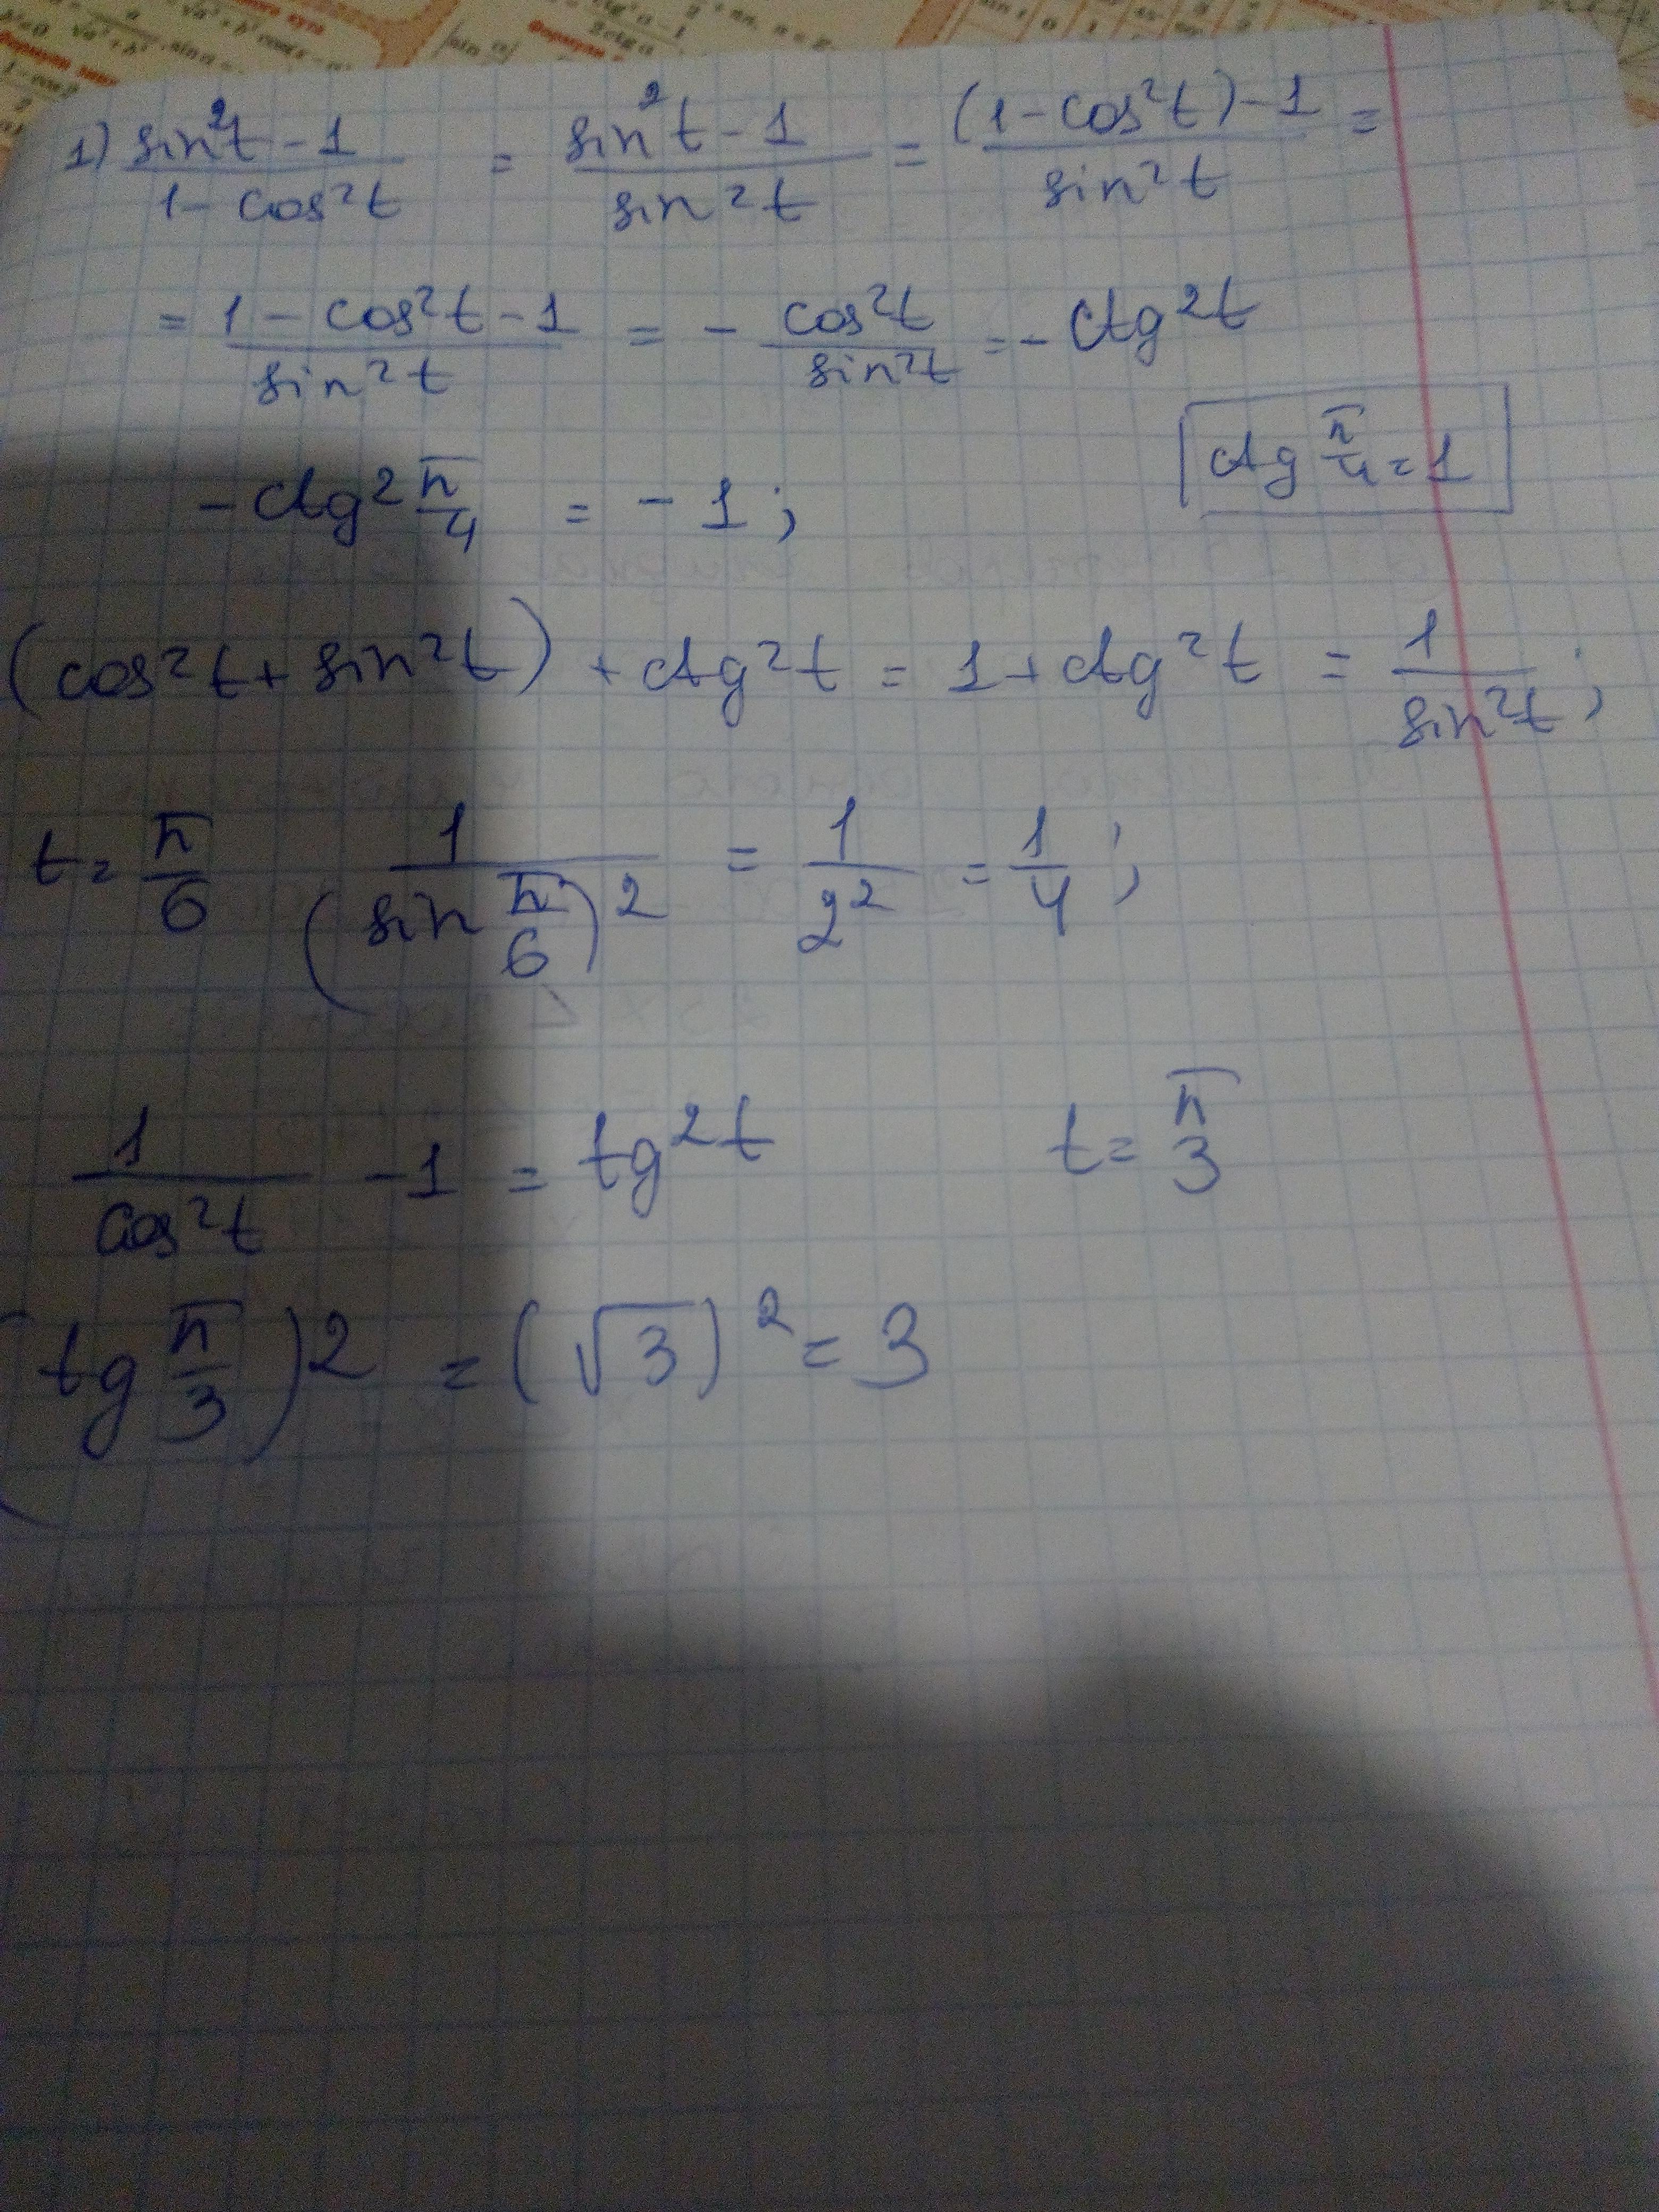 1) sin²t - 1 / 1 - cos²t = sin²t - 1 / sin²t = (1 - cos²t) - 1 / sin²t =
= 1 - cos²t - 1 / sin²t = - cos²t / sin²t = - ctg²t
ctg π/4 = 1
- ctg² π/4 = - 1 ;
(cos²t + sin²t) + ctg²t = 1 + ctg²t = 1 / sin²t ;
t = π/6 1 / (sin π/6)² = 1 / 2² = 1/4 ;
1 / cos²t - 1 = tg²t t = π/3
(tg π/3)² = (√3)² = 3